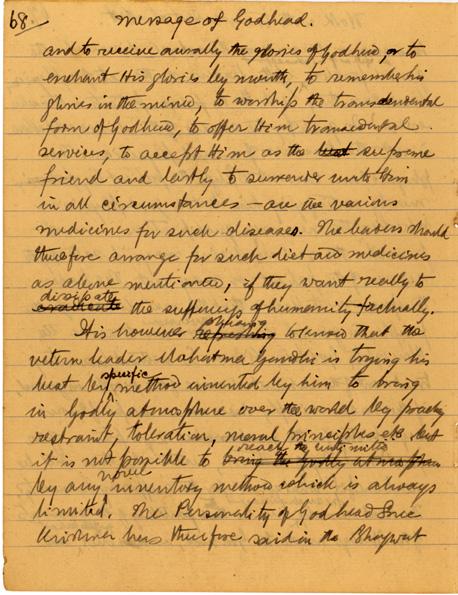 68. Message of Godhead.
and to receive aurally the glories of Godhead, or to
enchant His glories by mouth, to remember his
glories in the mind, to worship the transcendental
form of Godhead, to offer Him transcendental
services, to accept Him as the supreme
friend and lastly to surrender unto Him
in all circumstances — are the various
medicines for such diseases. The leaders should
therefore arrange for such diet and medicines
as above mentioned, if they want really to
dissipate
eradicate the sufferings of humanity factually.
It is however pleasing to us that the
vetern leader Mahatma Gandhi is trying his
specific
best by method invented by him to bring
in Godly atmosphere over the world by
restraint, toleration, moral principles etc but
reach the ultimate
it is not possible to bring the Godly atmosphere
by any inventory method which is always
limited. The Personality of Godhead Sree
Krishna has therefore said in the Bhagwat